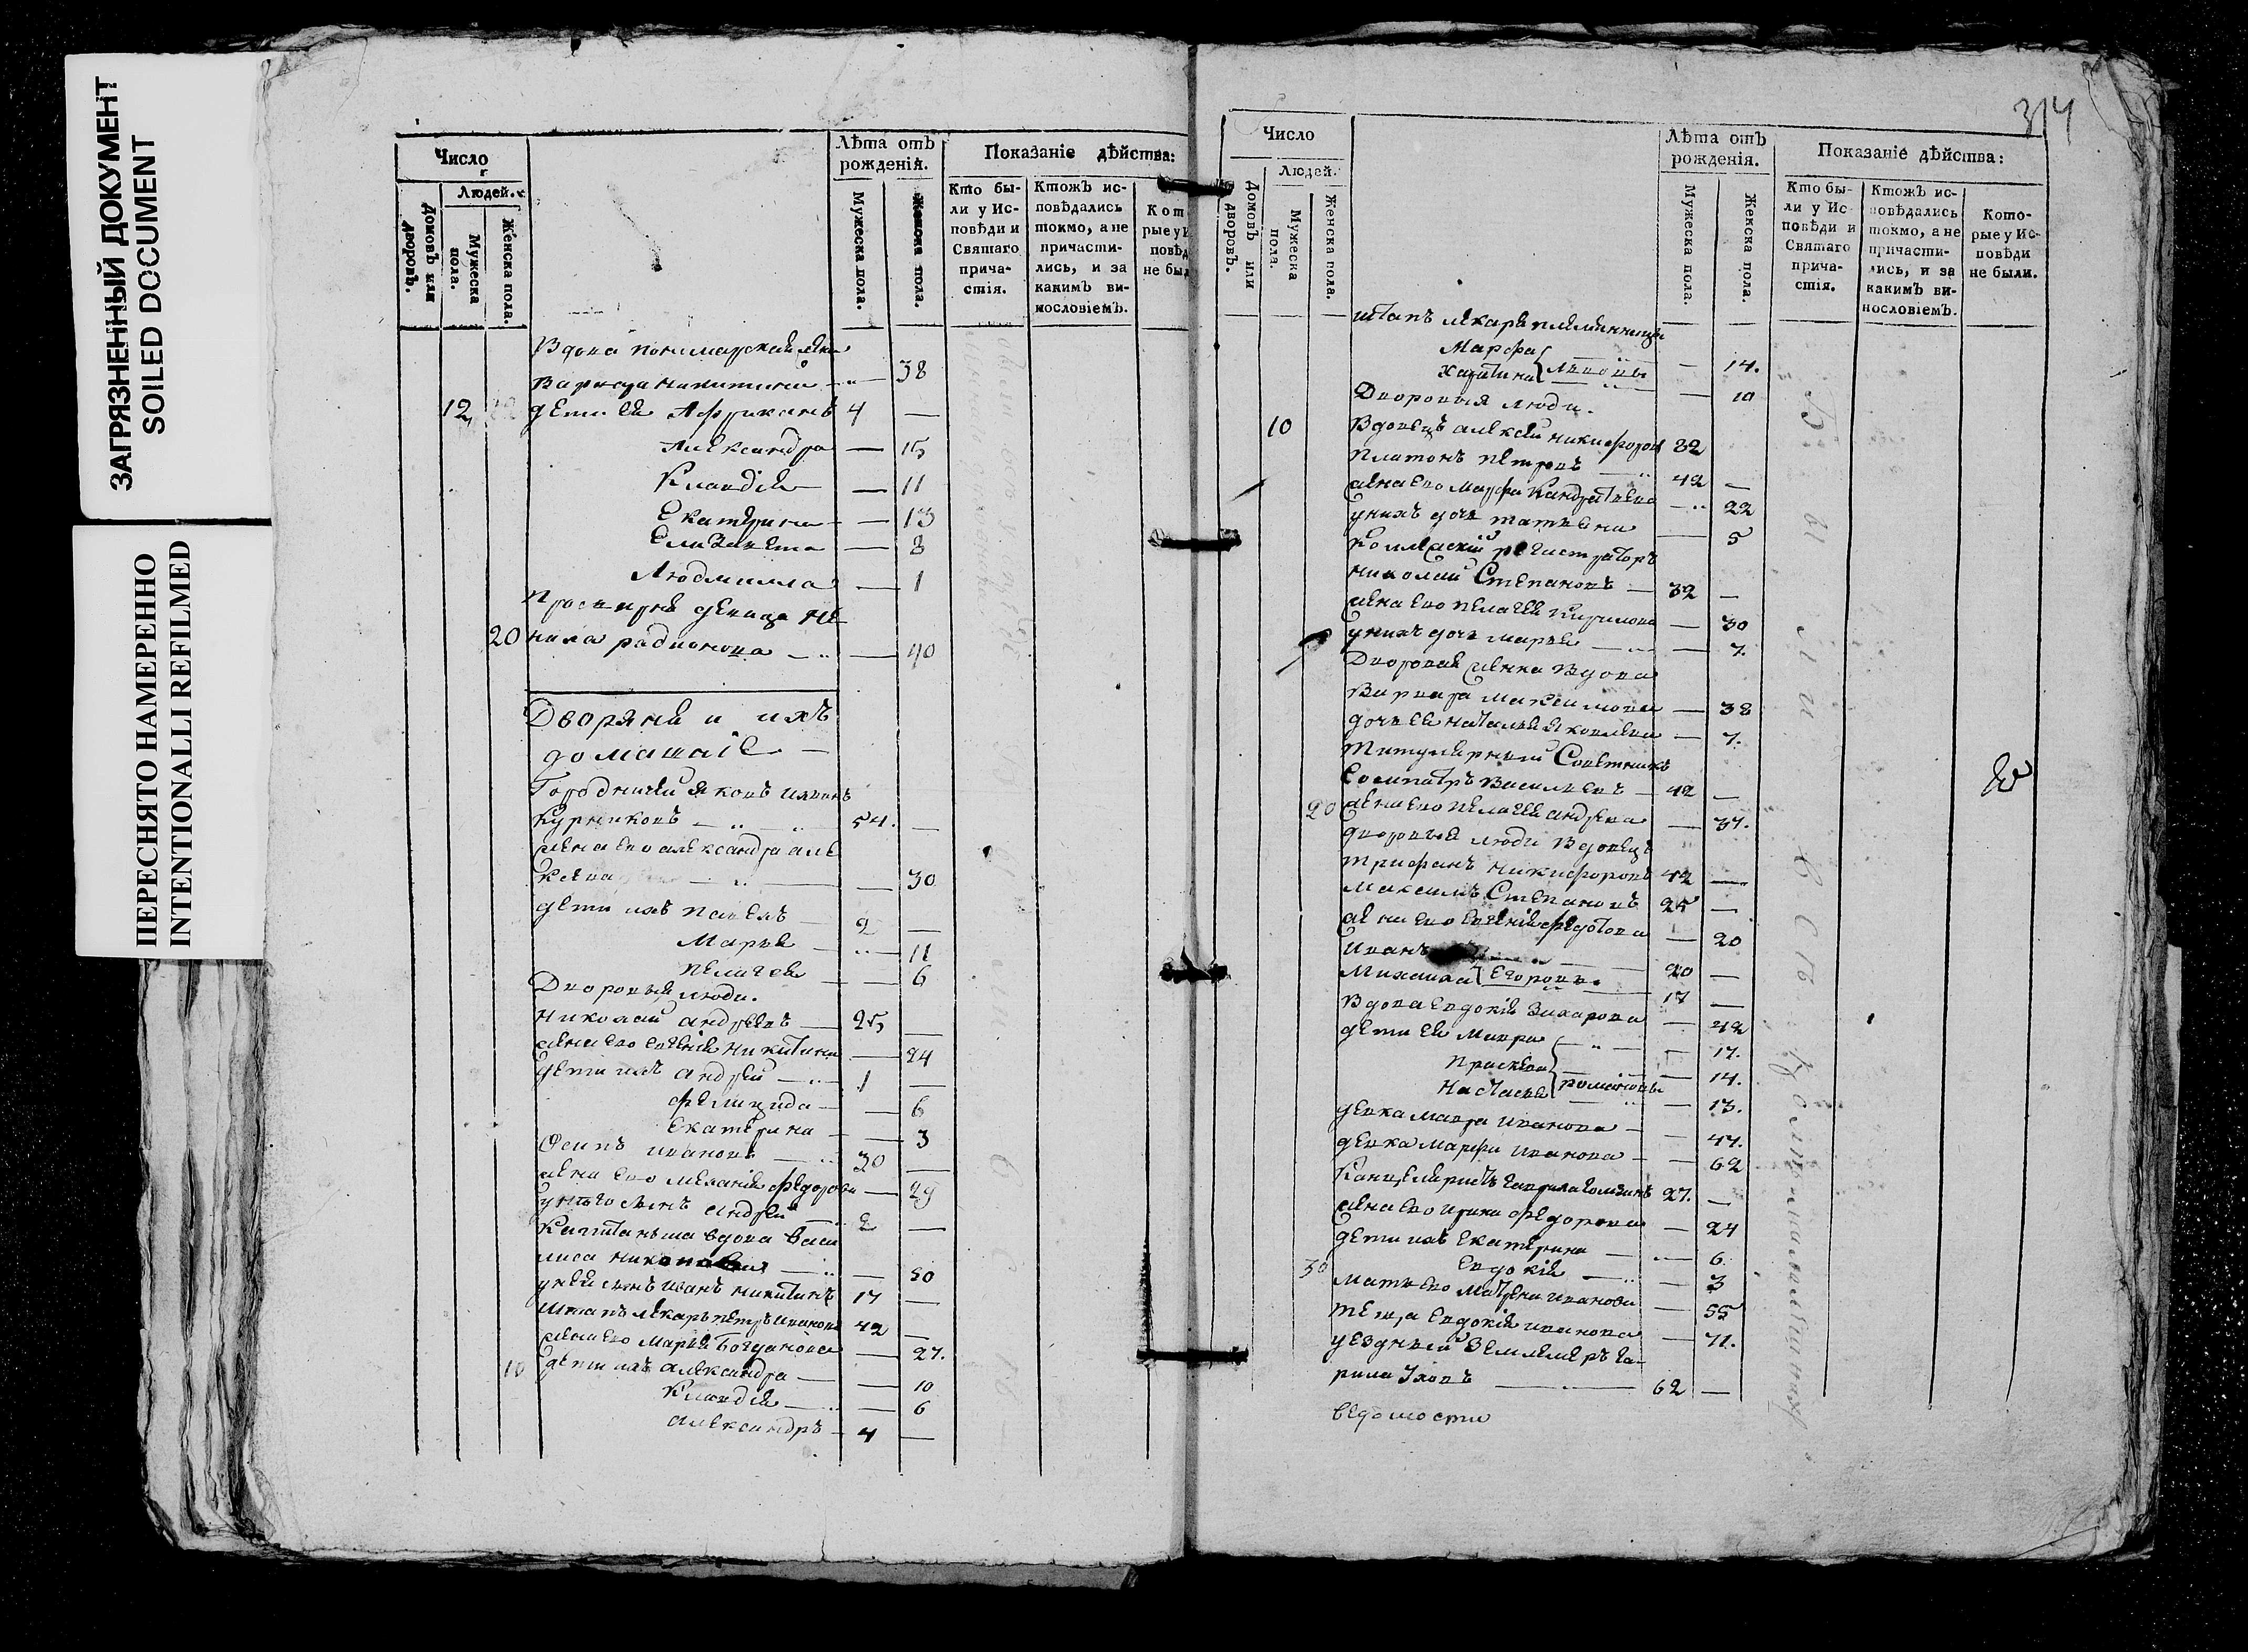 ЗАГРЯЗНЕННЫЙ ДОКУМЕНТ
SOILED DOCUMENT
ПЕРЕСНЯТО НАМЕРЕННО
INTENTIONALLI REFILMED
Число
Людей.
Домовъ или дворовъ.
Мужеска пола.
Женска пола.
Лѣта отъ рожденія.
Мужеска пола.
Женска пола.
Показаніе дѣйства:
Кто были у Исповѣди и Святаго причастія.
Ктожъ исповѣдались токмо, а не причастились, и за какимъ винословіемъ.
Кот
рые у И
повѣд
не был
Вдова пономарская жена
Варвара Никитина 38
12 дети ея Африканъ 4 —
Александра — 15
Клавдія — 11
Екатерина — 13
Елизавета — 8
Людмилла — 1
Просвирня девица Не
20 нила радионова — 40
Дворяня и ихъ
домашніе —
Городничей Яковъ
54. —
жена ево александра але
30
дети ихъ павелъ 2 —
Марья — 11
пелагея — 6
Дворовыя люди.
николай андреевъ — 25 —
жена ево евгенія никитина — 24
дети ихъ андрей 1 —
фелицида — 6
Екатерина — 3
Осипъ ивановъ 30 —
жена ево меланія федорова — 29
у него сынъ андрей 2 —
Капитанша вдова Васи
лиса — 50
у ней сынъ иванъ никитинъ 17 —
Штапъ лекарь петръ ивановъ 42 —
жена ево Марья Богданова — 27.
10 дети ихъ александра — 10
Клавдія — 6
александръ 4 —
314
Число
Людей.
Домовъ или дворовъ.
Мужеска пола.
Женска пола.
Лѣта отъ рожденія.
Мужеска пола.
Женска пола.
Показаніе дѣйства:
Кто были у Исповѣди и Святаго причастія.
Ктожъ исповѣдались токмо, а не причастились, и за какимъ винословіемъ.
Которые у Исповѣди не были.
штапъ лекаря племянницы
Марфа — 14.
— 10
Дворовыя люди.
10 Вдовецъ алексей никифоровъ 32
платонъ петровъ 42 —
жена ево марфа кандратьева 22
у нихъ дочь татьяна — 5
колежскій регистраторъ
николай Степановъ — 32 —
жена ево пелагея кирилова — 30
у нихъ дочь марья — 7.
Дворовая женка вдова
Варвара максимова — 38
дочь ея наталья яковлева — 7.
титулярный Советникъ
Василіевъ — 42 —
20 жена ево пелагея андреева — 37.
дворовыя люди вдовецъ
трифанъ никифоровъ 42 —
максимъ Степановъ 25 —
жена ево евгенія федотова — 20
иванъ 20 —
михаила Егоровы. 17 —
вдова евдокія Захарова — 42
дети ея мавра — 17.
прасковья — 14.
настасья романовы — 13.
девка мавра иванова — 47.
девка марфа иванова — 62
канцеляристъ гаврила 27. —
жена ево ирина федорова — 24
дети ихъ екатерина — 6
30 евдокія — 3
мать ево матрена иванова — 55
теща евдокія иванова — 71.
уездный землемеръ га-
рила 62 —
ведомости